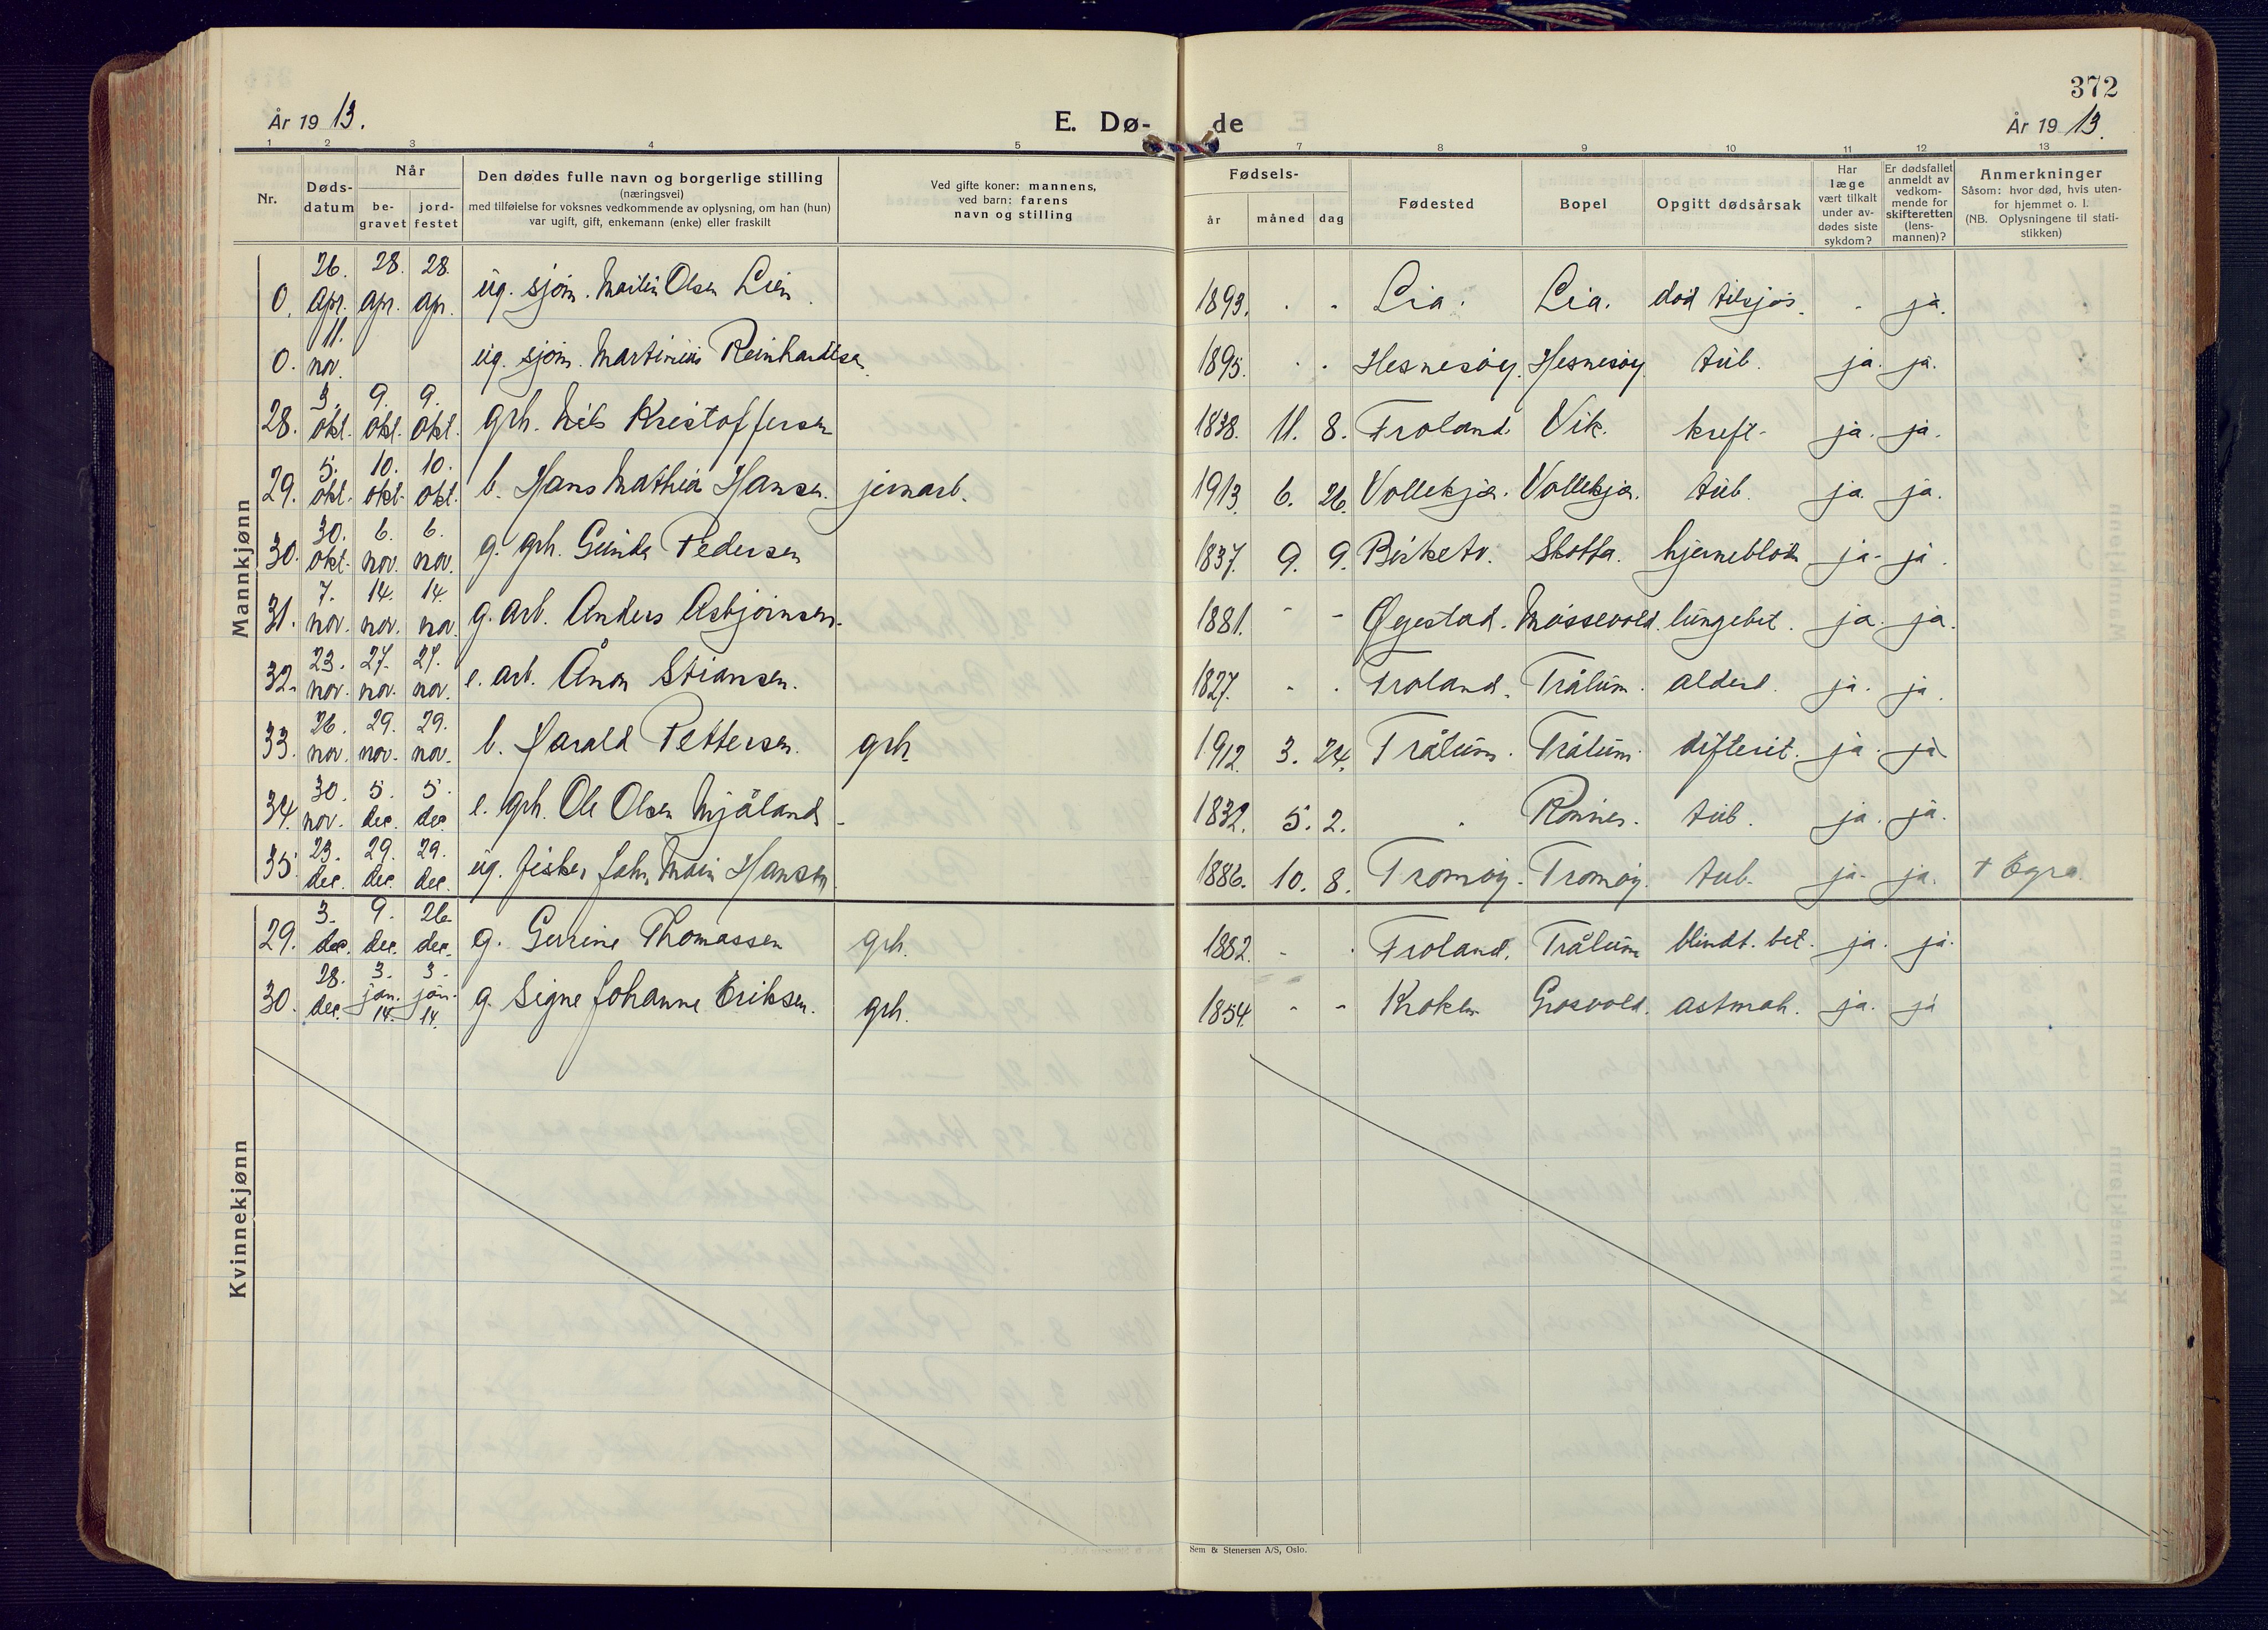 372
År 1913.
E. Dø-de
År 1913.
1 2 3 4 5 7 8 9 10 11 12 13
Nr.
Døds-datum
Når
be-gravet
jord-festet
Den dødes fulle navn og borgerlige stilling
(næringsvei)
med tilføielse for voksnes vedkommende av oplysning, om han (hun)
var ugift, gift, enkemann (enke) eller fraskilt
Ved gifte koner: mannens,
ved barn: farens
navn og stilling
Fødsels-
år måned dag
Fødested
Bopel
Opgitt dødsårsak
Har
læge
vært tilkalt
under av-
dødes siste
sykdom?
Er dødsfallet
anmeldt av
vedkom-
mende for
skifteretten
(lens-
mannen)?
Anmerkninger
Såsom: hvor død, hvis uten-
for hjemmet o. l.
(NB. Oplysningene til stati-
stikken)
Mannkjønn
0. 26. apr. 28. apr. 28. apr. ug. sjøm. Martin Olsen Lien. 1893. - - Lia. Lia. død tilsjøs. - ja.
0. 11. nov. ug. sjøm. Martinius Reinhardtsen 1895. - - Hesnesøy. Hesnesøy. tub. ja. ja.
28. 3. okt. 9. okt. 9. okt. grh. Nils Kristoffersen 1838. 11. 8. Froland. Vik. kreft. ja. ja.
29. 5. okt. 10. okt. 10. okt. b. Hans Mathias Hansen. jernarb. 1913. 6. 26. Vollekjær. Vollekjær. tub. ja. ja.
30. 30. okt. 6. nov. 6. nov. g. grh. Gunder Pedersen 1837. 9. 9. Birketv. Skotta. hjerneblødn ja. ja.
31. 7. nov. 14. nov. 14. nov. g. arb. Anders Asbjørnsen. 1881. - - Øyestad. Mossevold. lungebet. ja. ja.
32. 23. nov. 27. nov. 27. nov. e. arb. Ånon Stiansen. 1827. - - Froland. Trålum. alderd. ja. ja.
33. 26. nov. 29. nov. 29. nov. b. Harald Pettersen. grh. 1912. 3. 24. Trålum. Trålum. difterit. ja. ja
34. 30. nov. 5. dec. 5. dec. e. grh. Ole Olsen Mjåland. 1832. 5. 2. - Rønnes. tub. ja. ja.
35. 23. dec. 29. dec. 29. dec. ug. fisker John Hansen. 1886. 10. 8. Tromøy. Tromøy. tub. ja. ja. + Egra.
Kvinnekjønn
29. 3. dec. 9. dec. 26. dec. g. Gurine Thomassen grh. 1882. - - Froland. Trålum blindt. bet. ja. ja.
30. 28. dec. 3. jan. 14. 3. jan. 14. g. Signe Johanne Eriksen. grh. 1854. - - Kroken Grosvold. astmah. ja. ja
Sem & Stenersen A/S, Oslo.